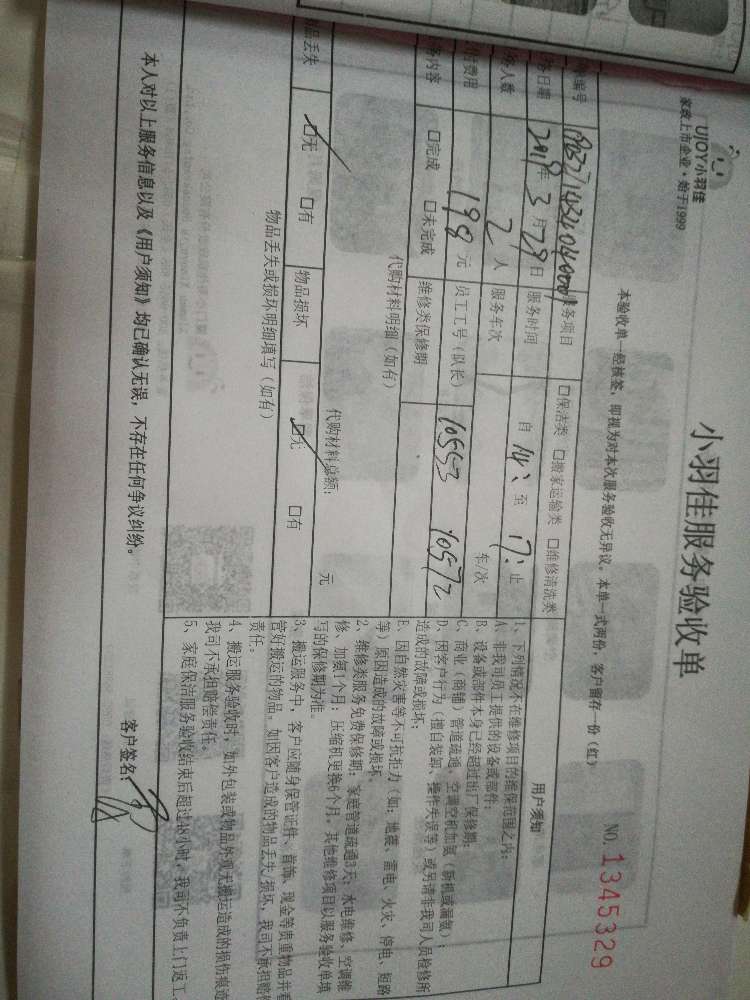 UJOY小羽佳
家政上市企业·始于1999
小羽佳服务验收单
本验收单一经核签，即视为对本次服务验收无异议，本单一式两份，客户留存一份（红）
NO. 1345329
编号 服务项目 □保洁类 □搬家运输类 □维修清洗类
日期 2019年3月29日 服务时间 自 14: 至 17: 止
人数 2 人 服务车次 车/次
费用 198 元 员工工号（队长） 10553 10572
内容 □完成 □未完成 维修类保修期
代购材料明细（如有）
代购材料总额： 元
物品丢失 □无 □有 物品损坏 □无 □有
物品丢失或损坏明细填写（如有）
用户须知
1、下列情况不在维修项目的维保范围之内：
A、非我司员工提供的设备或部件；
B、设备或部件本身已经超过出厂保修期；
C、商业（商铺）管道疏通，空调空机加氨（新机或漏氨）；
D、因客户行为（擅自装卸、操作失误等）或另请非我司人员检修所
造成的故障或损坏；
E、因自然灾害等不可抗拒力（如：地震、雷电、火灾、停电、短路
等）原因造成的故障或损坏。
2、维修类服务免费保修期：家庭管道疏通3天；水电维修、空调维
修、加氨1个月；压缩机更换6个月。其他维修项目以服务验收单填
写的保修期为准。
3、搬运服务中，客户应随身保管证件、首饰、现金等贵重物品并看
管好搬运的物品。如因客户造成的物品丢失/损坏，我司不承担赔偿
责任。
4、搬运服务验收时，如外包装或物品外观无搬运造成的损伤痕迹
我司不承担赔偿责任。
5、家庭保洁服务验收结束后超过48小时，我司不负责上门返工。
本人对以上服务信息以及《用户须知》均已确认无误，不存在任何争议纠纷。
客户签名：